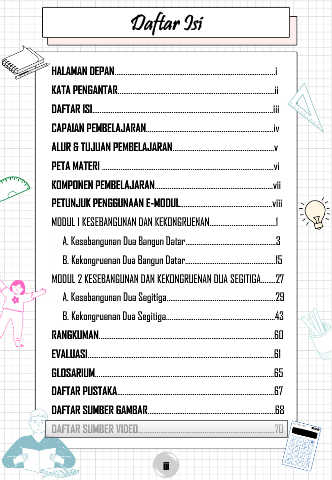 Daftar Isi
HALAMAN DEPAN i
KATA PENGANTAR ii
DAFTAR ISI iii
CAPAIAN PEMBELAJARAN iv
ALUR & TUJUAN PEMBELAJARAN v
PETA MATERI vi
KOMPONEN PEMBELAJARAN vii
PETUNJUK PENGGUNAAN E-MODUL viii
MODUL 1 KESEBANGUNAN DAN KEKONGRUENAN 1
A. Kesebangunan Dua Bangun Datar 3
B. Kekongruenan Dua Bangun Datar 15
MODUL 2 KESEBANGUNAN DAN KEKONGRUENAN DUA SEGITIGA 27
A. Kesebangunan Dua Segitiga 29
B. Kekongruenan Dua Segitiga 43
RANGKUMAN 60
EVALUASI 61
GLOSARIUM 65
DAFTAR PUSTAKA 67
DAFTAR SUMBER GAMBAR 68
DAFTAR SUMBER VIDEO 70